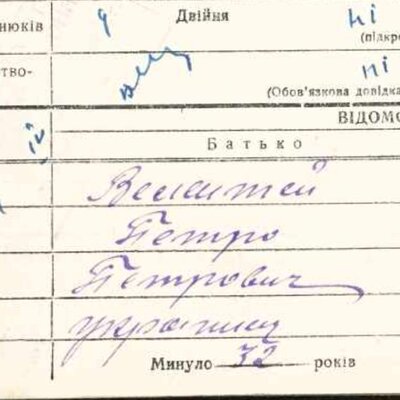 нюків ч Двійня ні
(підкре
тво- ні
(Обов'язкова довідка
ВІДОМО
Батько
Петро
Петрович
українец
Минуло 32 років